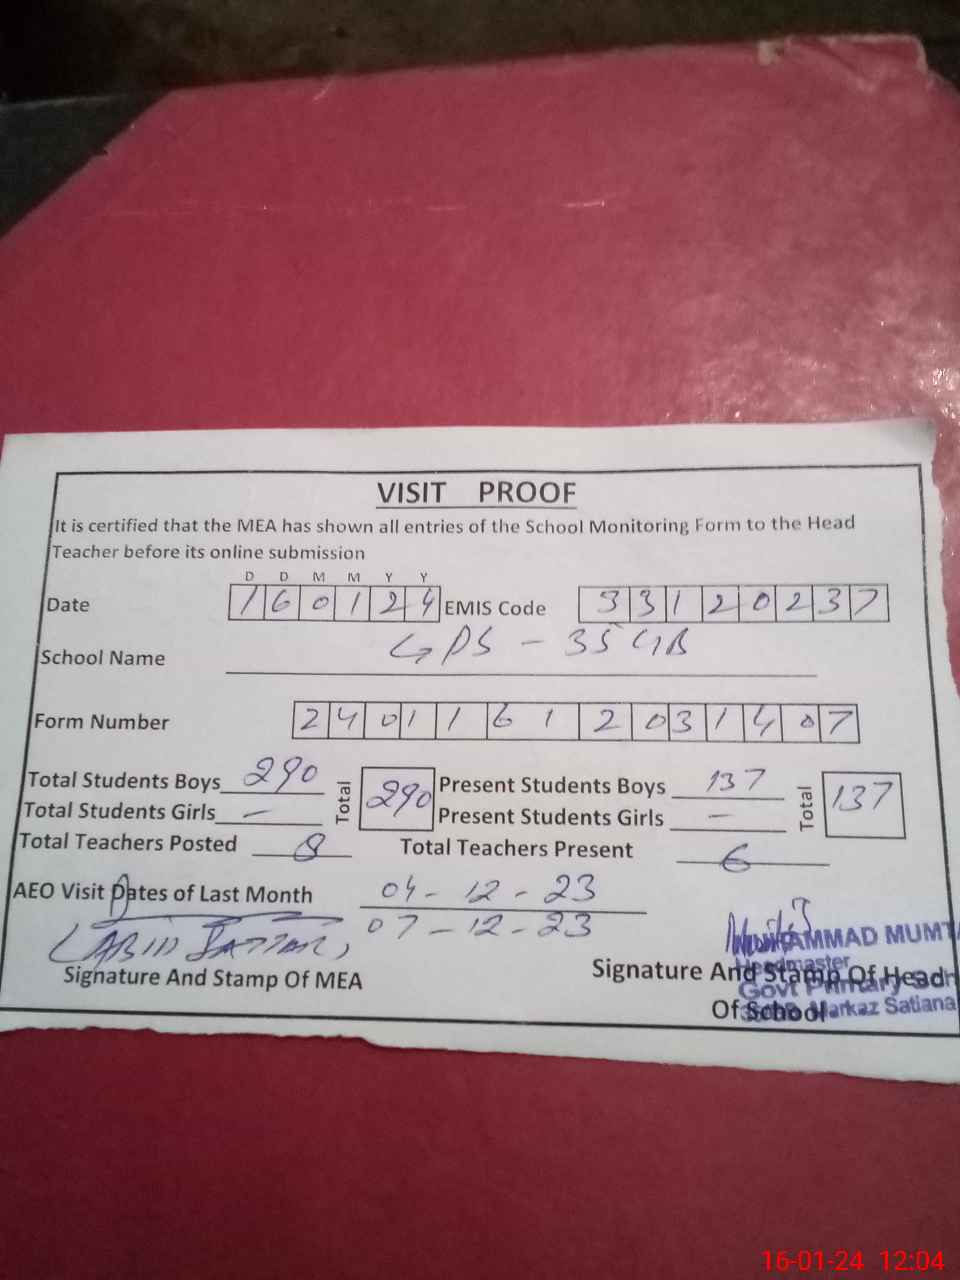 VISIT PROOF
It is certified that the MEA has shown all entries of the School Monitoring Form to the Head
Teacher before its online submission
D D M M Y Y
Date 160124 EMIS Code 33120237
School Name GPS - 35 GB
Form Number 24011612031407
Total Students Boys 290 Total 290 Present Students Boys 137 Total 137
Total Students Girls - Present Students Girls -
Total Teachers Posted 8 Total Teachers Present 6
AEO Visit Dates of Last Month 04-12-23
07-12-23
(ABID SATTAR)
MUHAMMAD MUMT
Headmaster
Govt Primary Sch
Markaz Satiana
Signature And Stamp Of MEA
Signature And Stamp Of Head
Of School
16-01-24 12:04